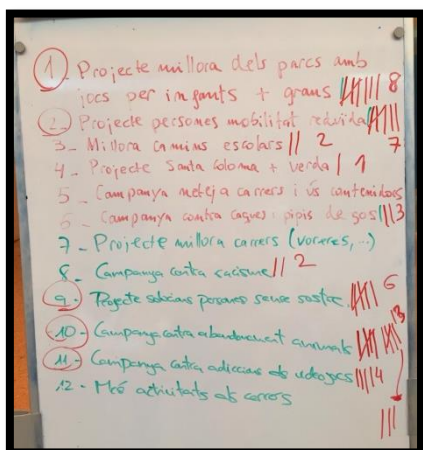 1 - Projecte millora dels parcs amb
jocs per infants + grans 8
2 - Projecte persones mobilitat reduïda 7
3 - Millora camins escolars || 2
4 - Projecte Santa Coloma + verda | 1
5 - Campanya neteja carrers i ús contenidors
6 - Campanya contra caques i pipis de gos ||| 3
7 - Projecte millora carrers (voreres, ...)
8 - Campanya contra racisme || 2
9 - Projecte persones sense sostre 6
10 - Campanya contra abandonament animals 13
11 - Campanya contra addiccions als videojocs |||| 4
12 - Més activitats als carrers
|||